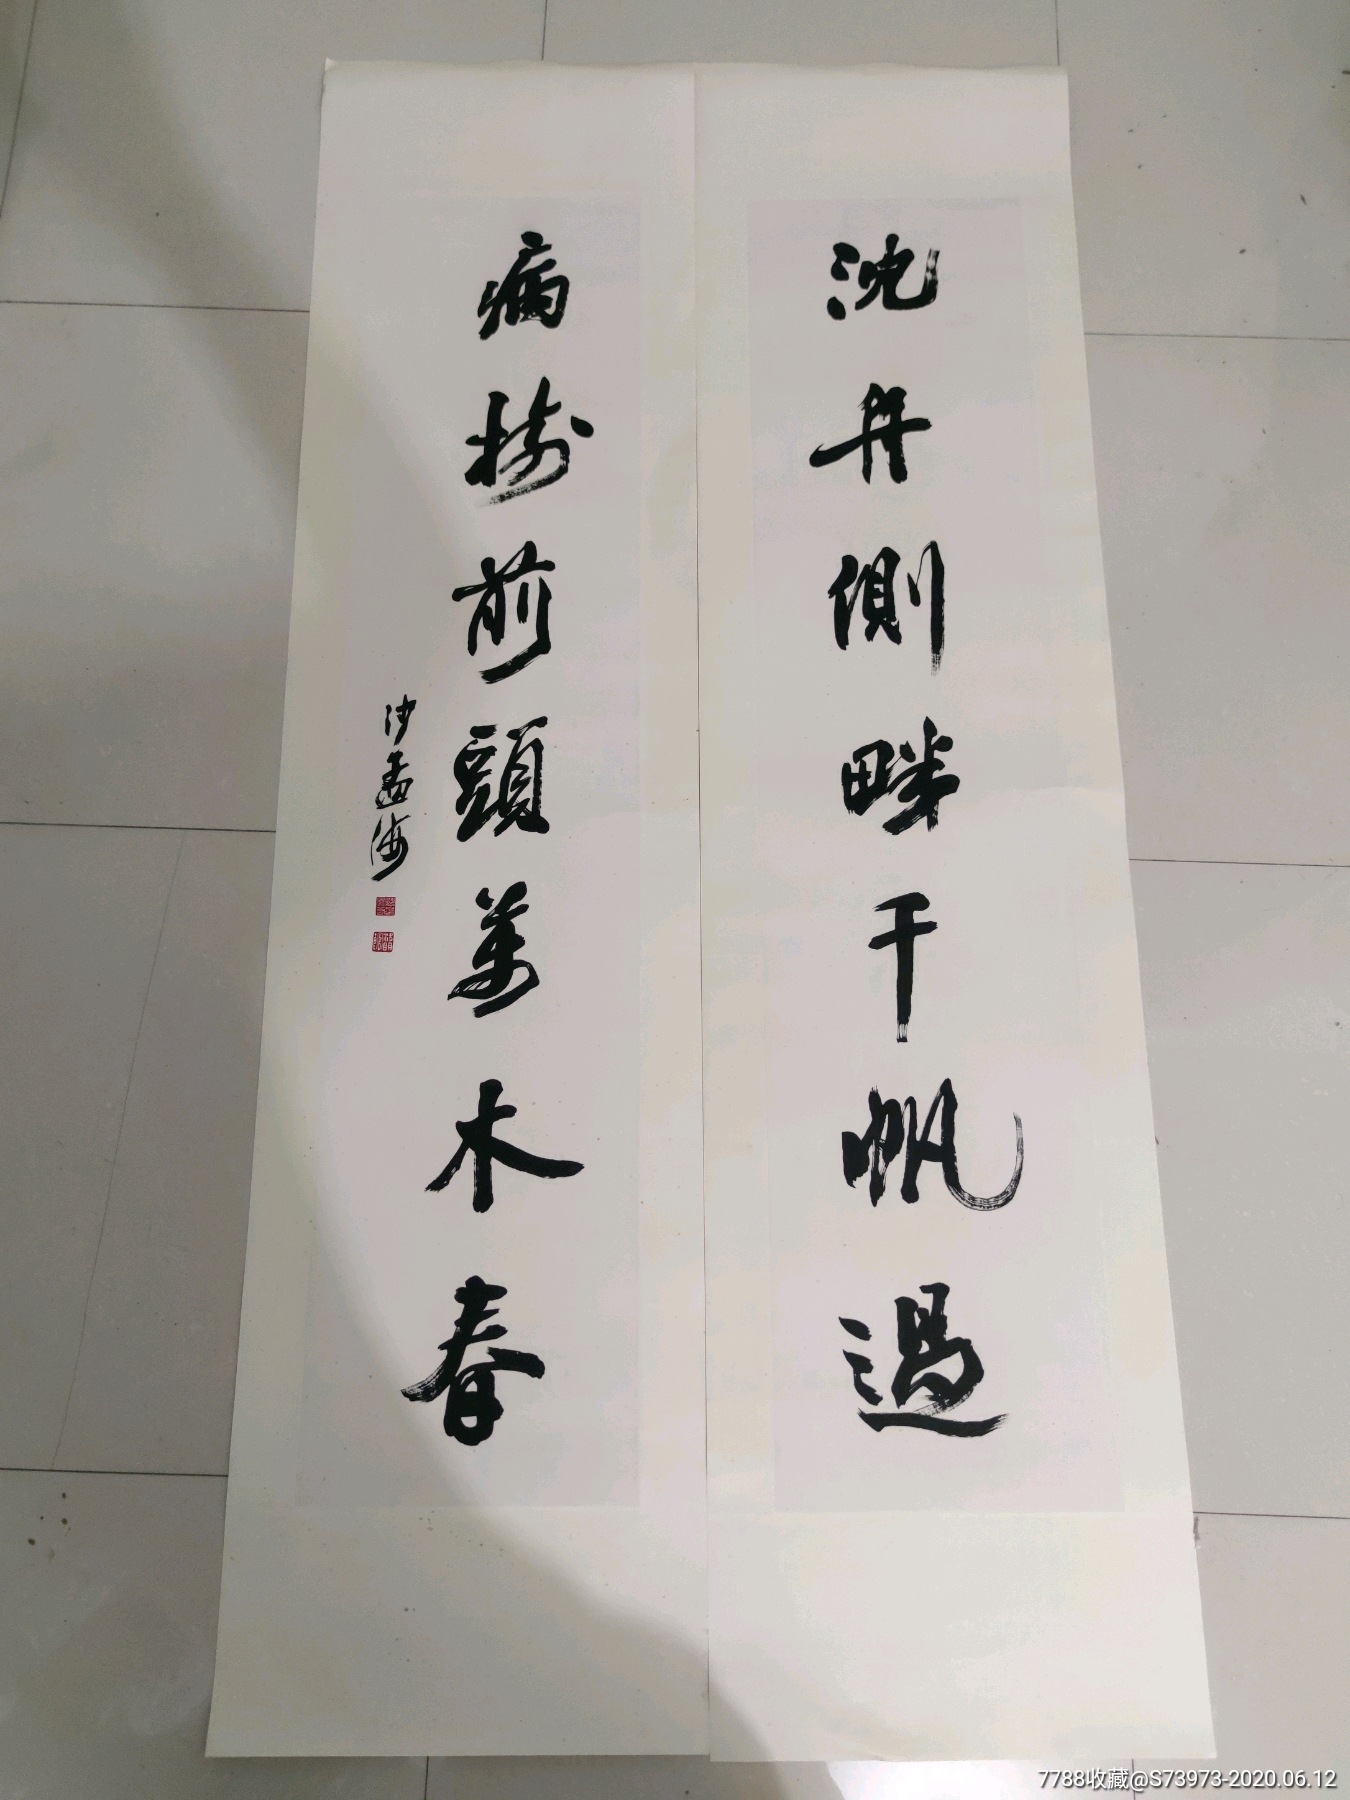 沈舟側畔千帆過
病樹前頭萬木春
沙孟海
7788收藏@S73973-2020.06.12